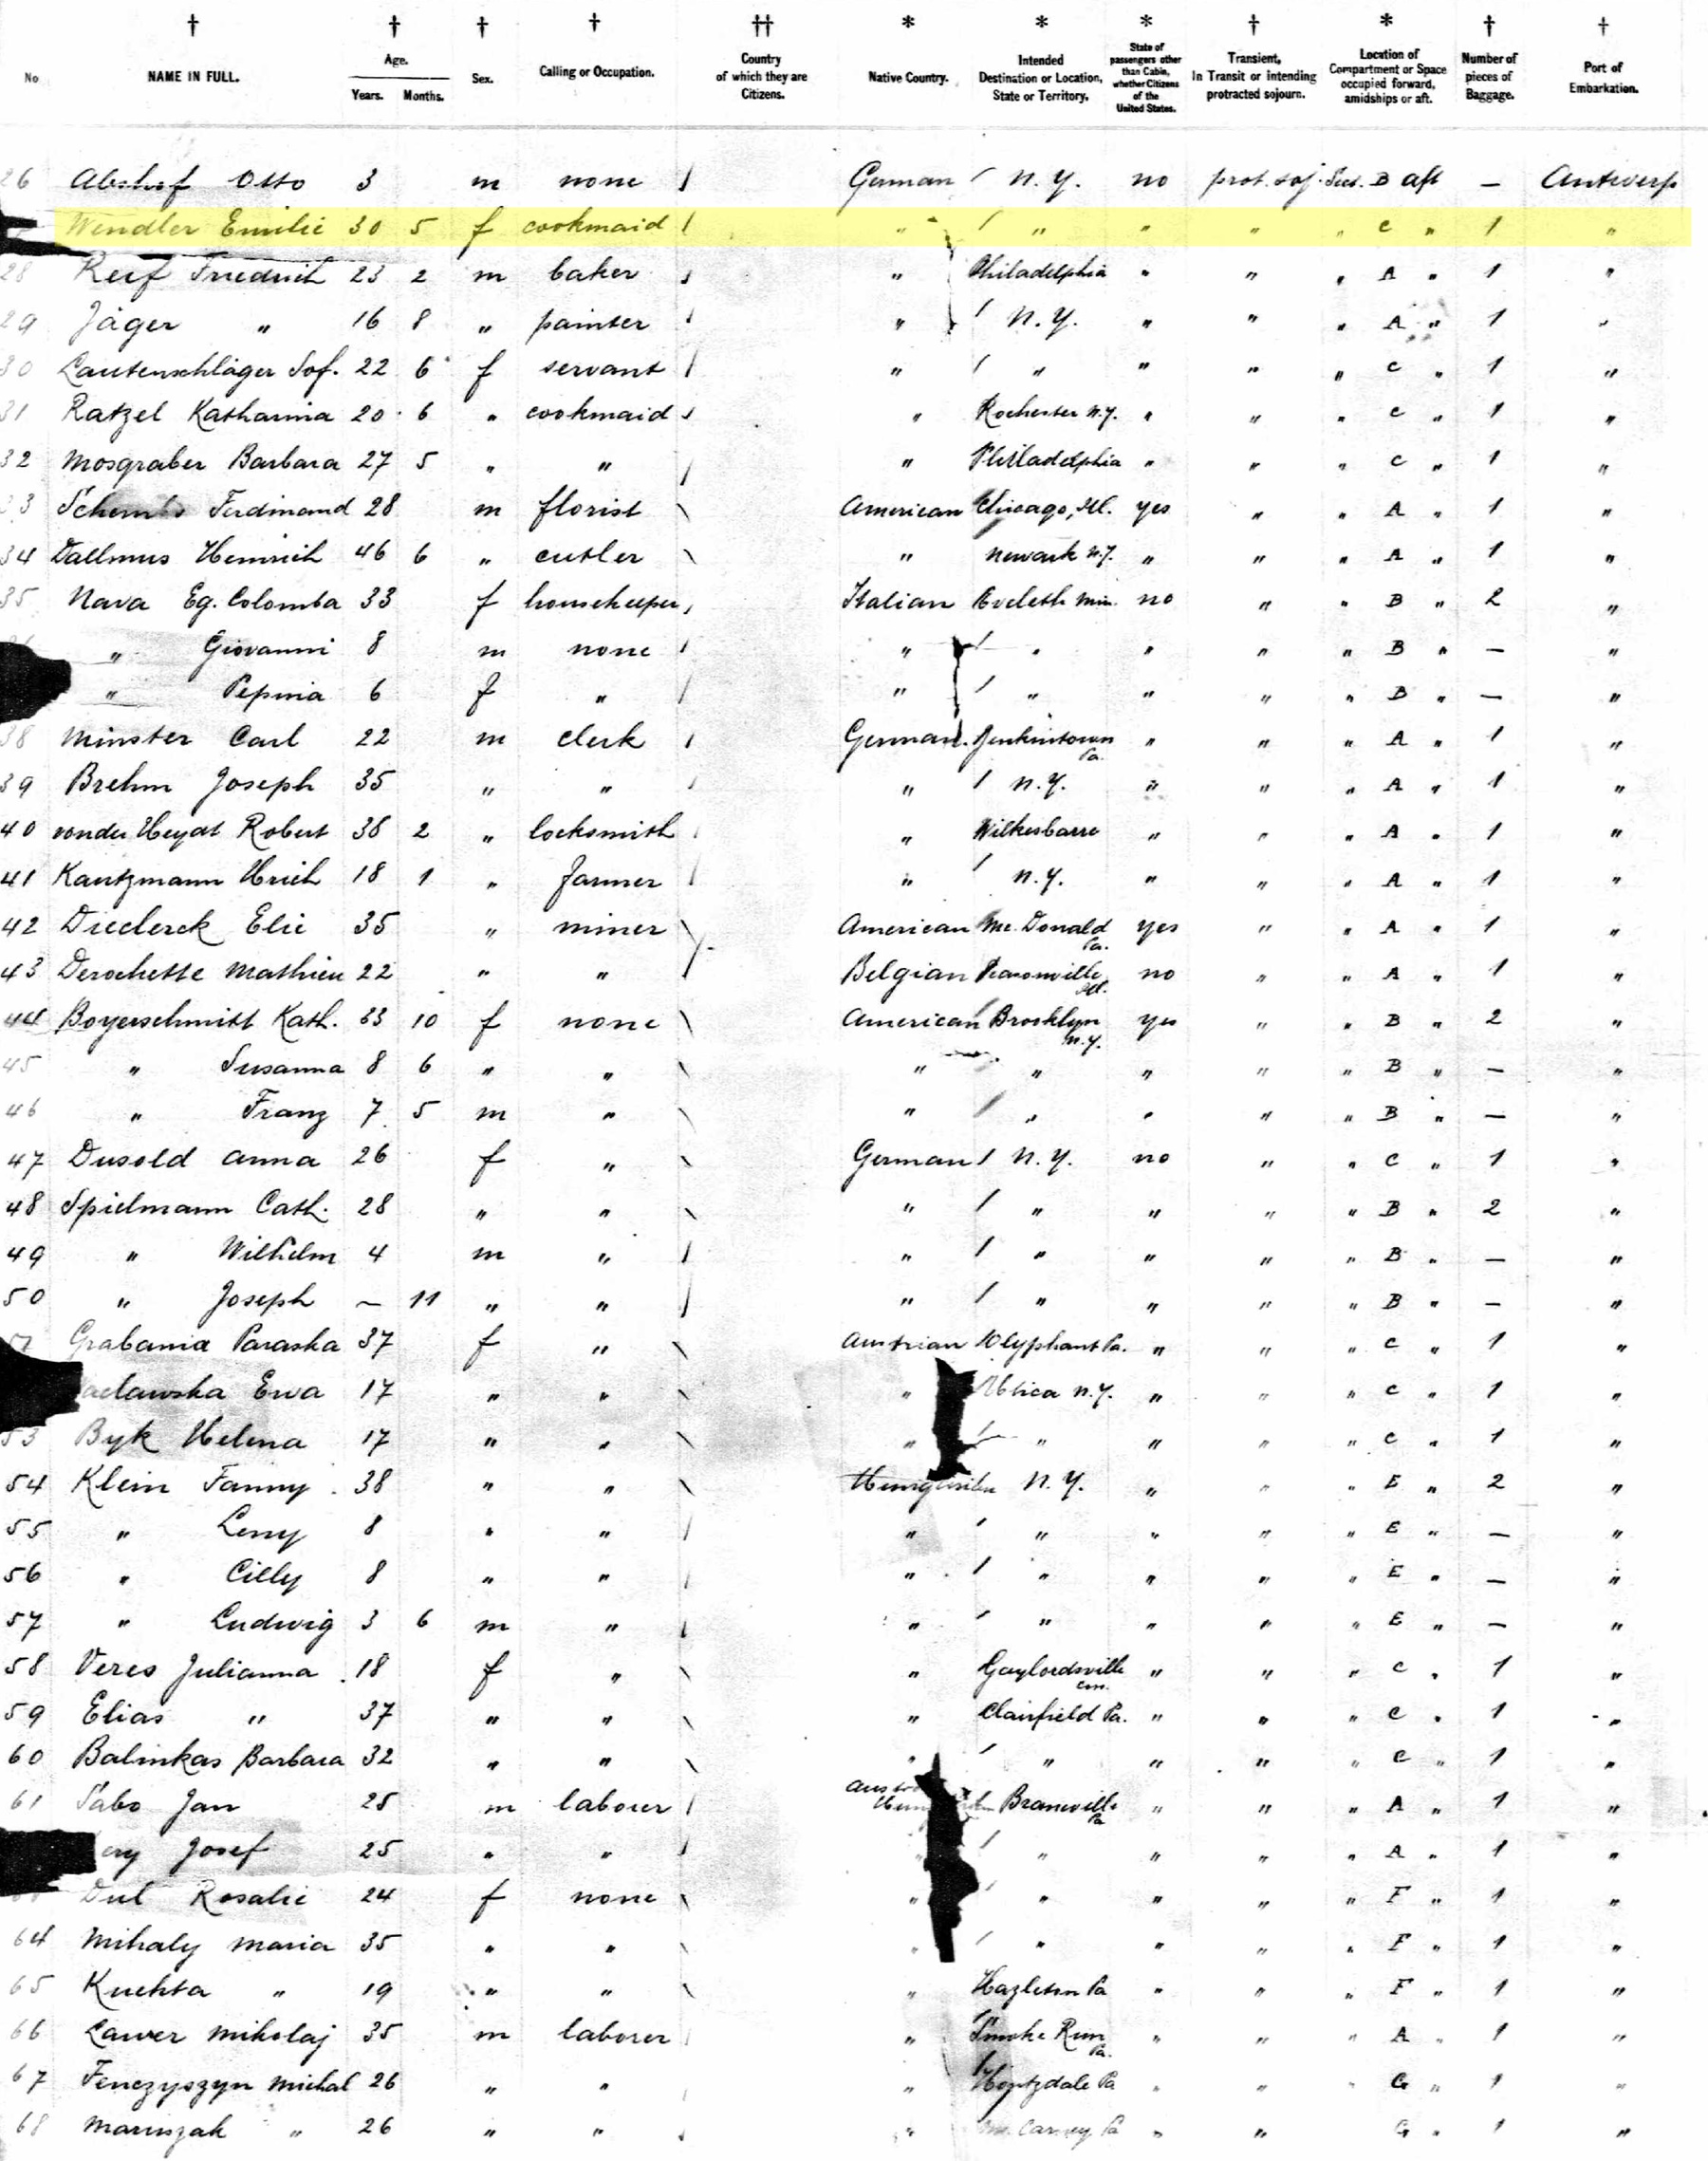 † † † † †† * * * † * † †
No NAME IN FULL. Age. Years. Months. Sex. Calling or Occupation. Country of which they are Citizens. Native Country. Intended Destination or Location, State or Territory. State of passengers other than Cabin, whether Citizens of the United States. Transient, In Transit or intending protracted sojourn. Location of Compartment or Space occupied forward, amidships or aft. Number of pieces of Baggage. Port of Embarkation.
26 Otto 3 m none German N.Y. no prot. soj. B aft — Antwerp
Wendler Emilie 30 5 f cookmaid " " " " " C " 1 "
28 Reif Friedrich 23 2 m baker " Philadelphia " " " A " 1 "
29 Jäger " 16 8 " painter " N.Y. " " " A " 1 "
30 Lautenschläger Sof. 22 6 f servant " " " " " C " 1 "
31 Ratzel Katharina 20 6 " cookmaid " Rochester N.Y. " " " C " 1 "
32 Mosgraber Barbara 27 5 " " " Philladelphia " " " C " 1 "
33 Ferdinand 28 m florist American Chicago, Ill. yes " " A " 1 "
34 Dallmus Heinrich 46 6 " cutler " Newark N.J. " " " A " 1 "
35 Nava Eg. Colomba 33 f housekeeper Italian Eveleth Min. no " " B " 2 "
" Giovanni 8 m none " " " " " B " — "
" Pepina 6 f " " " " " " B " — "
38 Minster Carl 22 m clerk German Jenkintown Pa. " " " A " 1 "
39 Brehm Joseph 35 " " " N.Y. " " " A " 1 "
40 von der Heydt Robert 38 2 " locksmith " Wilkesbarre " " " A " 1 "
41 Kautzmann Hrich 18 1 " farmer " N.Y. " " " A " 1 "
42 Dieclerck Elie 35 " miner American Mc. Donald Pa. yes " " A " 1 "
43 Derochette Mathieu 22 " " Belgian Ill. no " " A " 1 "
44 Boyerschmitt Kath. 33 10 f none American Brooklyn N.Y. yes " " B " 2 "
45 " Susanna 8 6 " " " " " " " B " — "
46 " Franz 7 5 m " " " " " " B " — "
47 Dusold Anna 26 f " German N.Y. no " " C " 1 "
48 Spielmann Cath. 28 " " " " " " " B " 2 "
49 " Wilhelm 4 m " " " " " " B " — "
50 " Joseph — 11 " " " " " " " B " — "
Grabania Paraska 37 f " Austrian Olyphant Pa. " " " C " 1 "
Ewa 17 " " " Utica N.Y. " " " C " 1 "
53 Byk Helena 17 " " " " " " " C " 1 "
54 Klein Fanny 38 " " N.Y. " " " E " 2 "
55 " Leny 8 " " " " " " " E " — "
56 " Cilly 8 " " " " " " " E " — "
57 " Ludwig 3 6 m " " " " " " E " — "
58 Veres Julianna 18 f " " Gaylordsville Con. " " " C " 1 "
59 Elias " 37 " " " Clairfield Pa. " " " C " 1 "
60 Balinkas Barbara 32 " " " " " " " C " 1 "
61 Sabo Jan 25 m laborer Pa " " " A " 1 "
Josef 25 " " " " " " " A " 1 "
Dul Rosalie 24 f none " " " " " F " 1 "
64 Mihaly Maria 35 " " " " " " " F " 1 "
65 Kuchta " 19 " " " Hazleton Pa " " " F " 1 "
66 Lawer Mikolaj 35 m laborer " Smoke Run Pa. " " " A " 1 "
67 Fenczyszyn Michal 26 " " " Houtzdale Pa " " " G " 1 "
68 " 26 " " " Carney Pa " " " G " 1 "